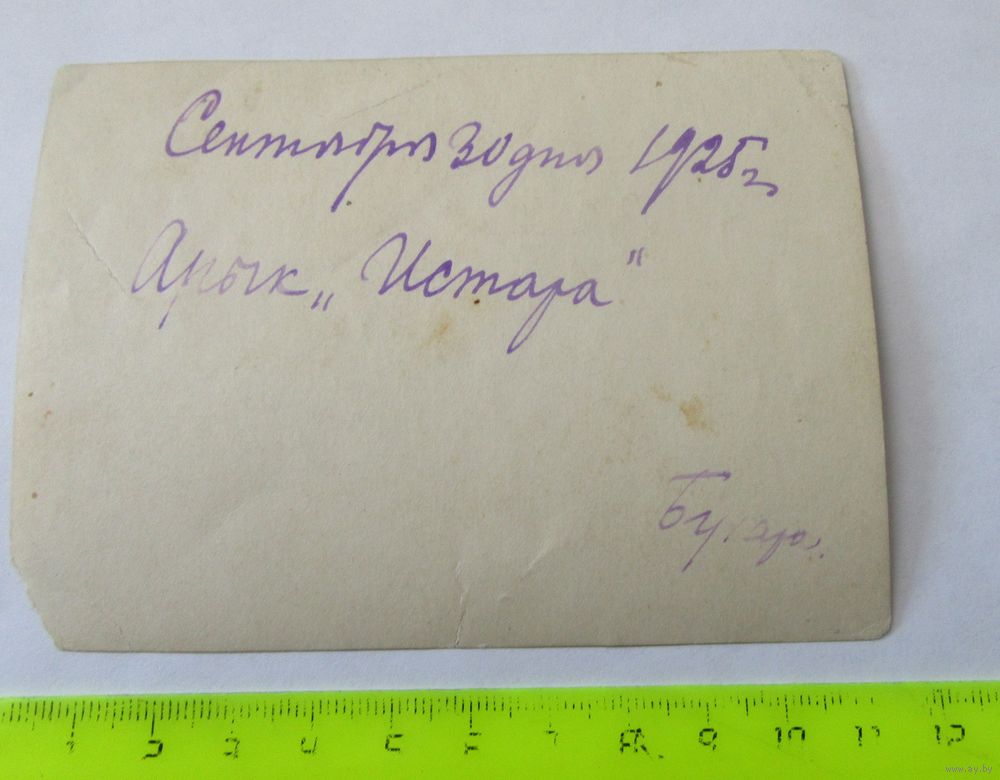 Сентября 30 дня 1925 г.
Арык „Истара“
Бухара.
1 2 3 4 5 6 7 8 9 10 11 12
www.ay.by